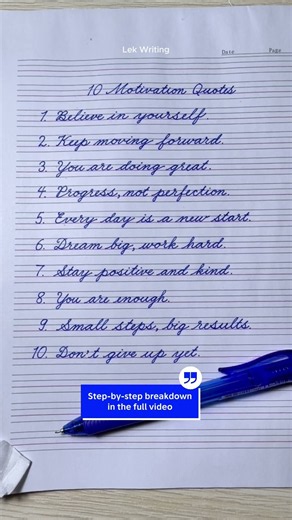 Lek Writing
Date Page
10 Motivation Quotes
1. Believe in yourself
2. Keep moving forward.
3. You are doing great.
4. Progress, not perfection.
5. Every day is a new start.
6. Dream big, work hard.
7. Stay positive and kind.
8. You are enough.
9. Small steps, big results.
10. Don't give up yet.
Step-by-step breakdown
in the full video